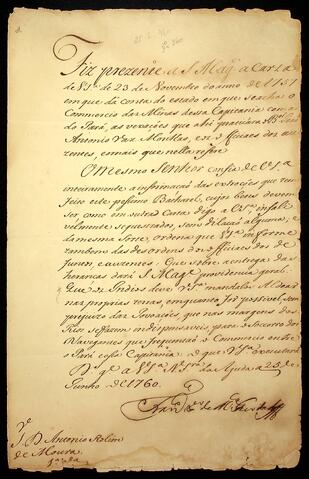 Fiz prezente a S. Mag.e a Carta
de V.S.a de 23 de Novembro do anno de 1757
em que da conta do estado em que se acha o
Commercio das Minas dessa Capitania com o
do Pará, as vexações que ahi praticára o B.el
Antonio Vaz e Officiaes dos au
zentes, e o mais que nella refere
O mesmo Senhor confia de V.S.a
inteiramente a informação das extorções que tem
feito este pessimo Bacharel, cujos bens devem
ser como em outra Carta digo a V.S.a infali
velmente sequestrados, sem dilação alguma, e
da mesma sorte, ordena que V.S.a informe
tambem das desordens dos Officiaes dos de
funtos, e auzentes. Que sobre a entrega das
heranças dará S. Mag.e providencia geral.
Que os Indios deve V.S.a mandalos Aldear
nas proprias terras, emquanto for possivel, sem
prejuizo das Povoações, que nas margens dos
Rios se fazem indispensaveis para o socorro dos
Navegantes que frequentão o Commercio entre
o Pará e essa Capitania. O que V.S.a executará
D.s g.e a V.S.a N.S.ra da Ajuda a 25 de
Junho de 1760.
S.r D. Antonio Rolim
de Moura